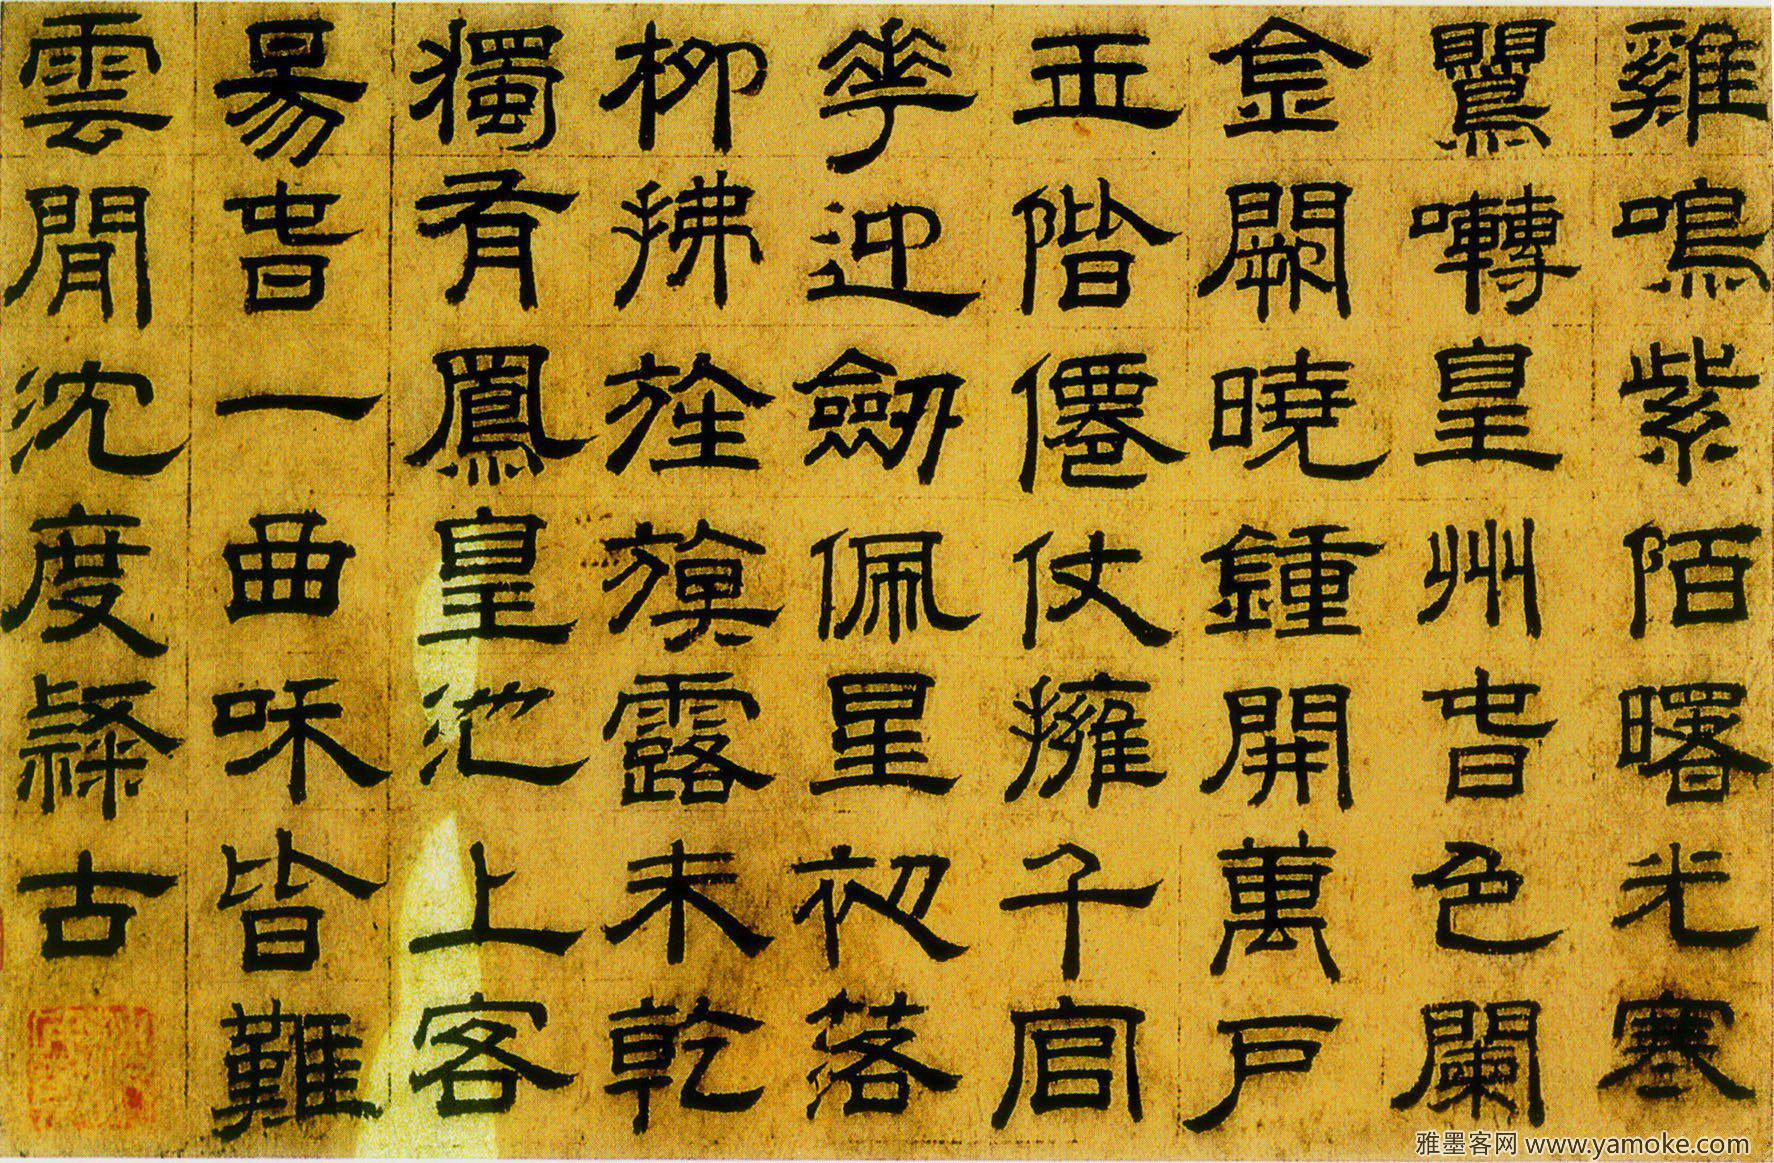 雞鳴紫陌曙光寒
鸎囀皇州旾色闌
金闕曉鍾開萬戶
玉階僊仗擁千官
華迎劒佩星初落
柳拂旌旗露未乾
獨有鳳皇池上客
昜旾一曲咊皆難
雲閒沈度隸古
雅墨客网 www.yamoke.com